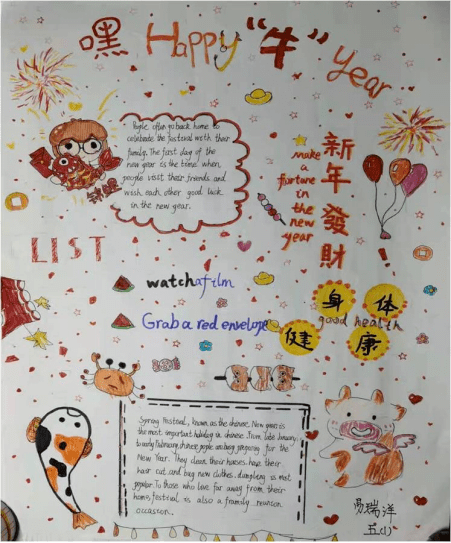 嘿 Happy "牛" Year
People often go back home to
celebrate the festival with their
family. The first day of the
new year is the time when
people visit their friends and
wish each other good luck
in the new year.
新年發財
make
a
fortune
in
the
new
year
LIST
watch a film
Grab a red envelope
身体
good health
健康
Spring Festival, known as the chinese New year is
the most important holiday in chinese. From late January
to early February chinese people are busy preparing for the
New Year. They clean their houses have their
hair cut and buy new clothes. dumpling is most
popular To those who live far away from their
home, festival is also a family reunion
occasion.
易瑞洋
五(1)